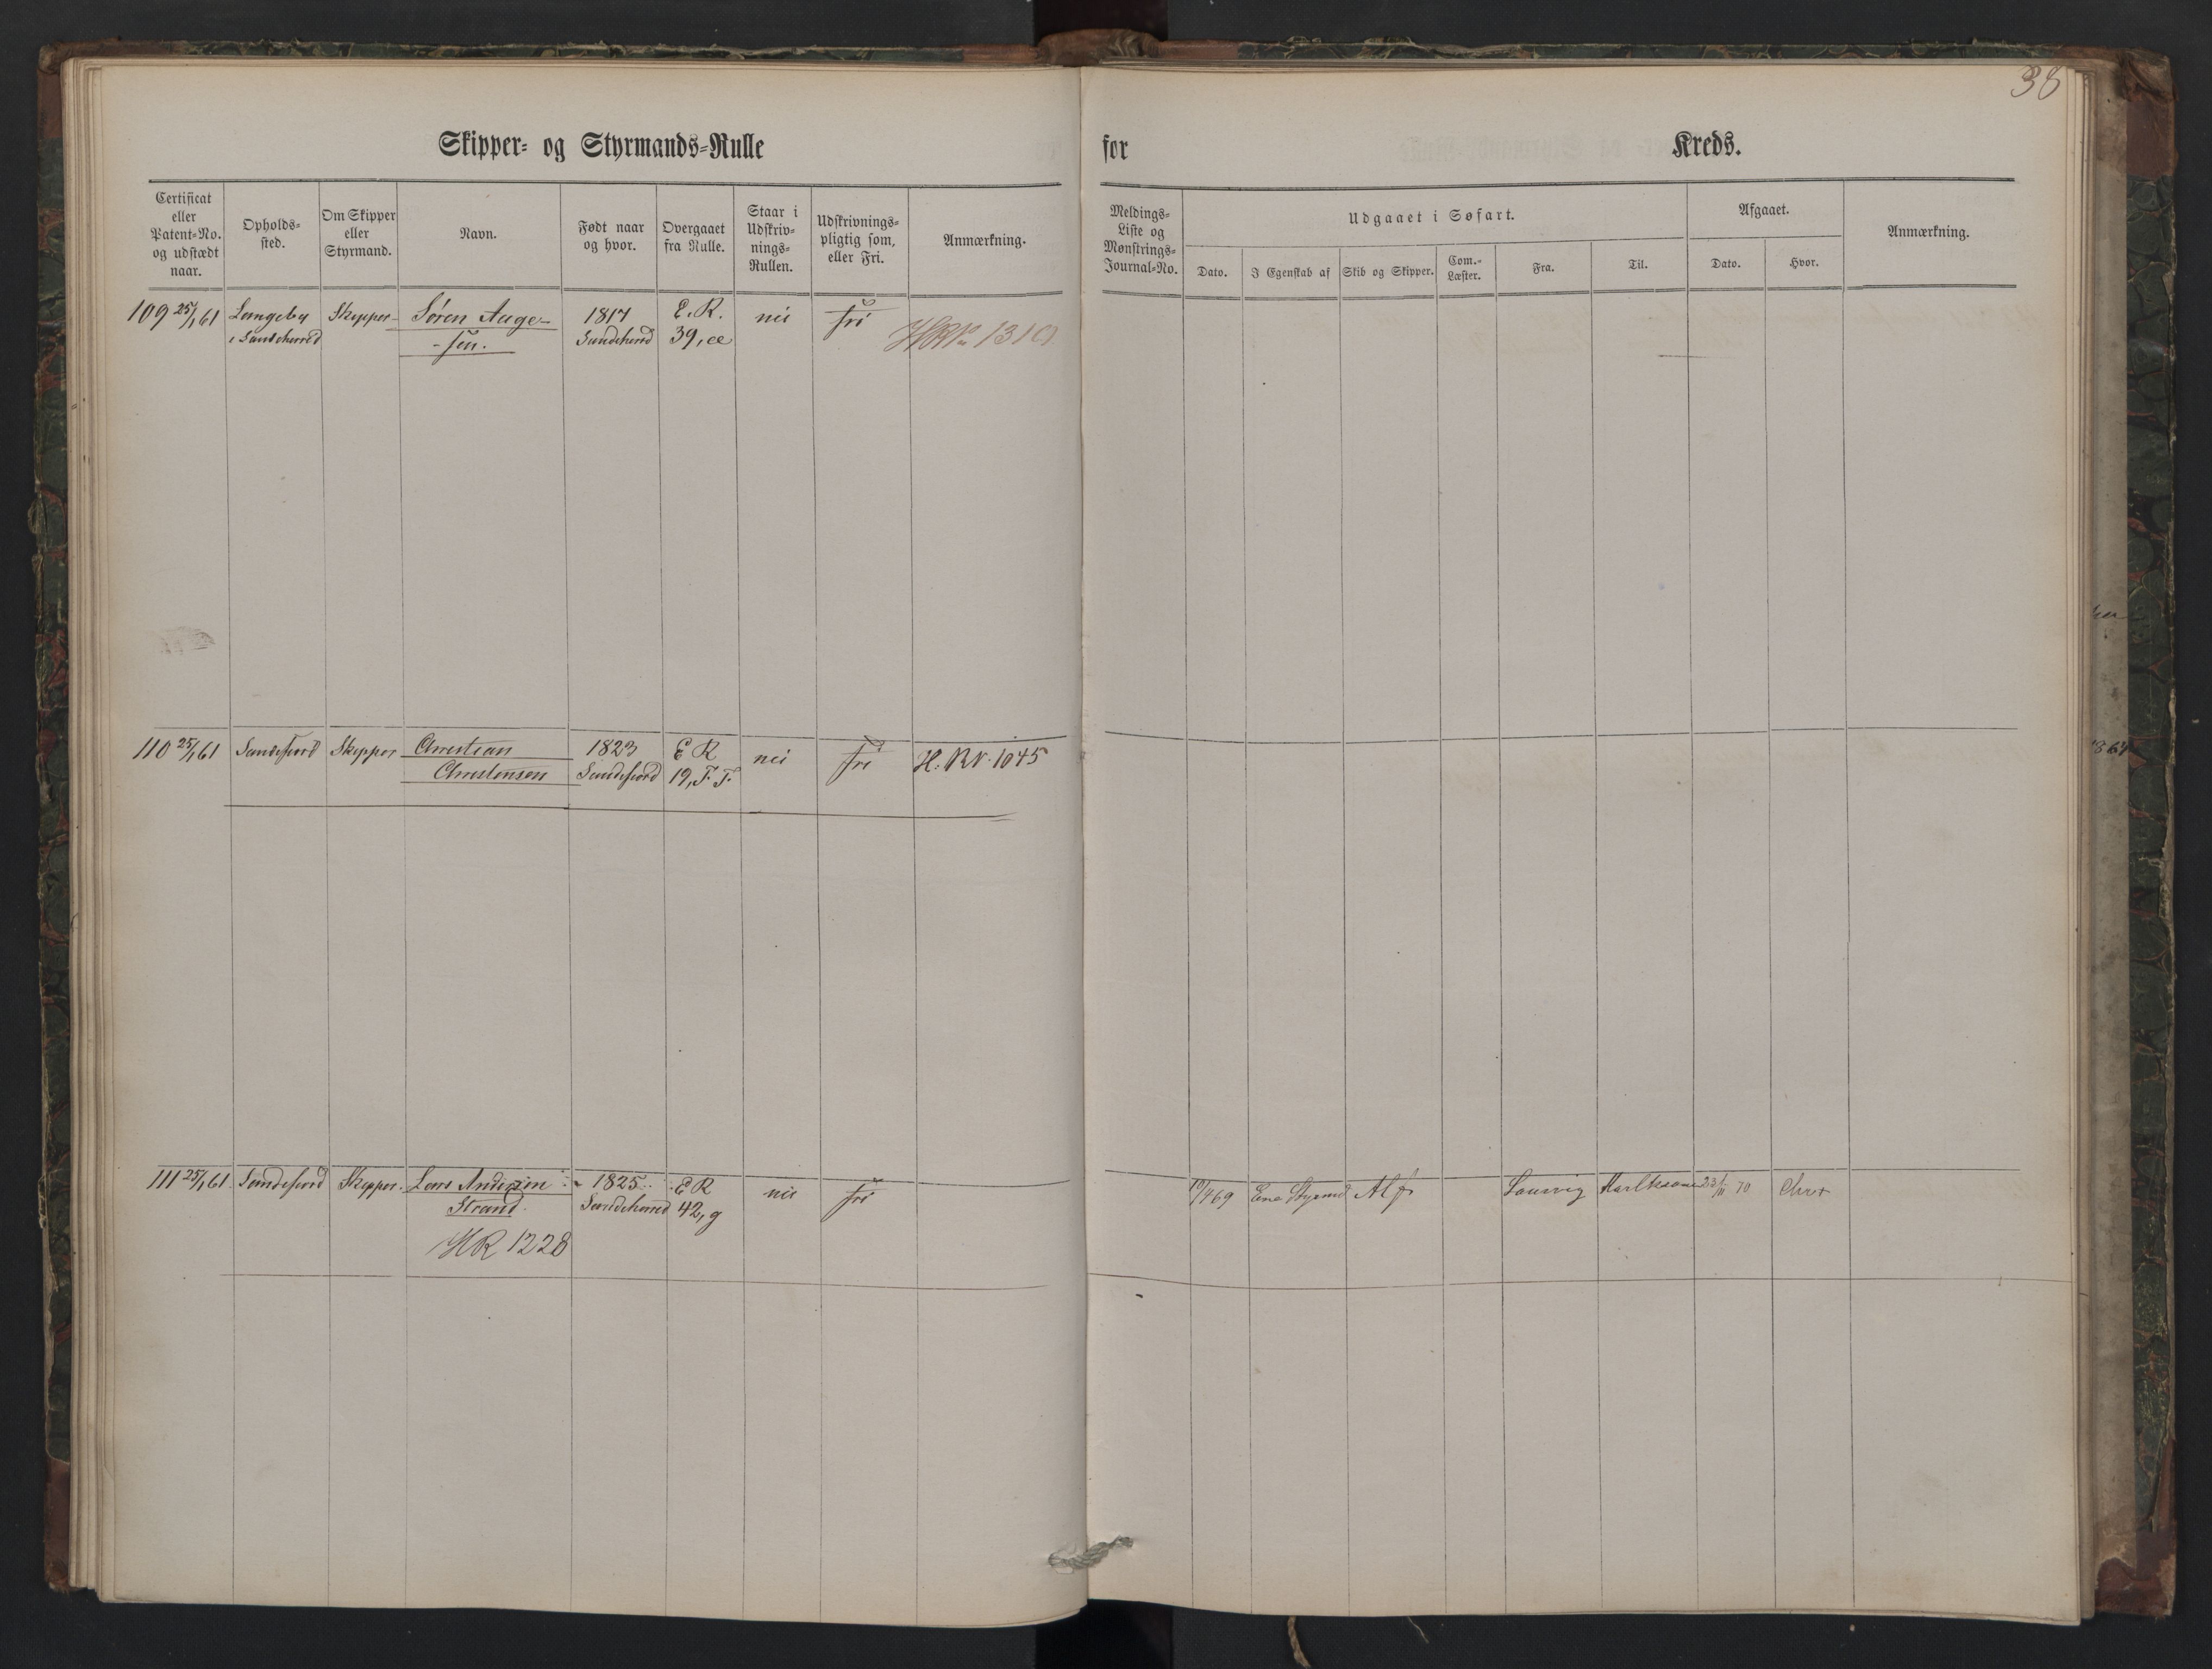 38
Skipper- og Styrmands-Rulle for Kreds.
Certificat eller Patent-No. og udstædt naar.
Opholds-sted.
Om Skipper eller Styrmand.
Navn.
Født naar og hvor.
Overgaaet fra Rulle.
Staar i Udskriv-nings-Rullen.
Udskrivnings-pligtig som, eller Fri.
Anmærkning.
Meldings-Liste og Mønstrings-Journal-No.
Udgaaet i Søfart.
Dato.
I Egenskab af
Skib og Skipper.
Com.-Læster.
Fra.
Til.
Afgaaet.
Dato.
Hvor.
Anmærkning.
109 25/1 61 Langeby Skipper Søren Aage- 1817 E. R. nei fri
i Sandeherred - sen. Sandeherred 39, HRNo 1310
110 25/1 61 Sandefiord Skipper Christian 1823 E R nei fri H. R N. 1045
Christensen Sandefiord 19, F. F.
111 25/1 61 Sandefiord Skipper. Lars Andersen 1825 E R nei fri
Strand Sandeherred 42, g
HR 1228
69 Styrmd Alf Laurvig 70